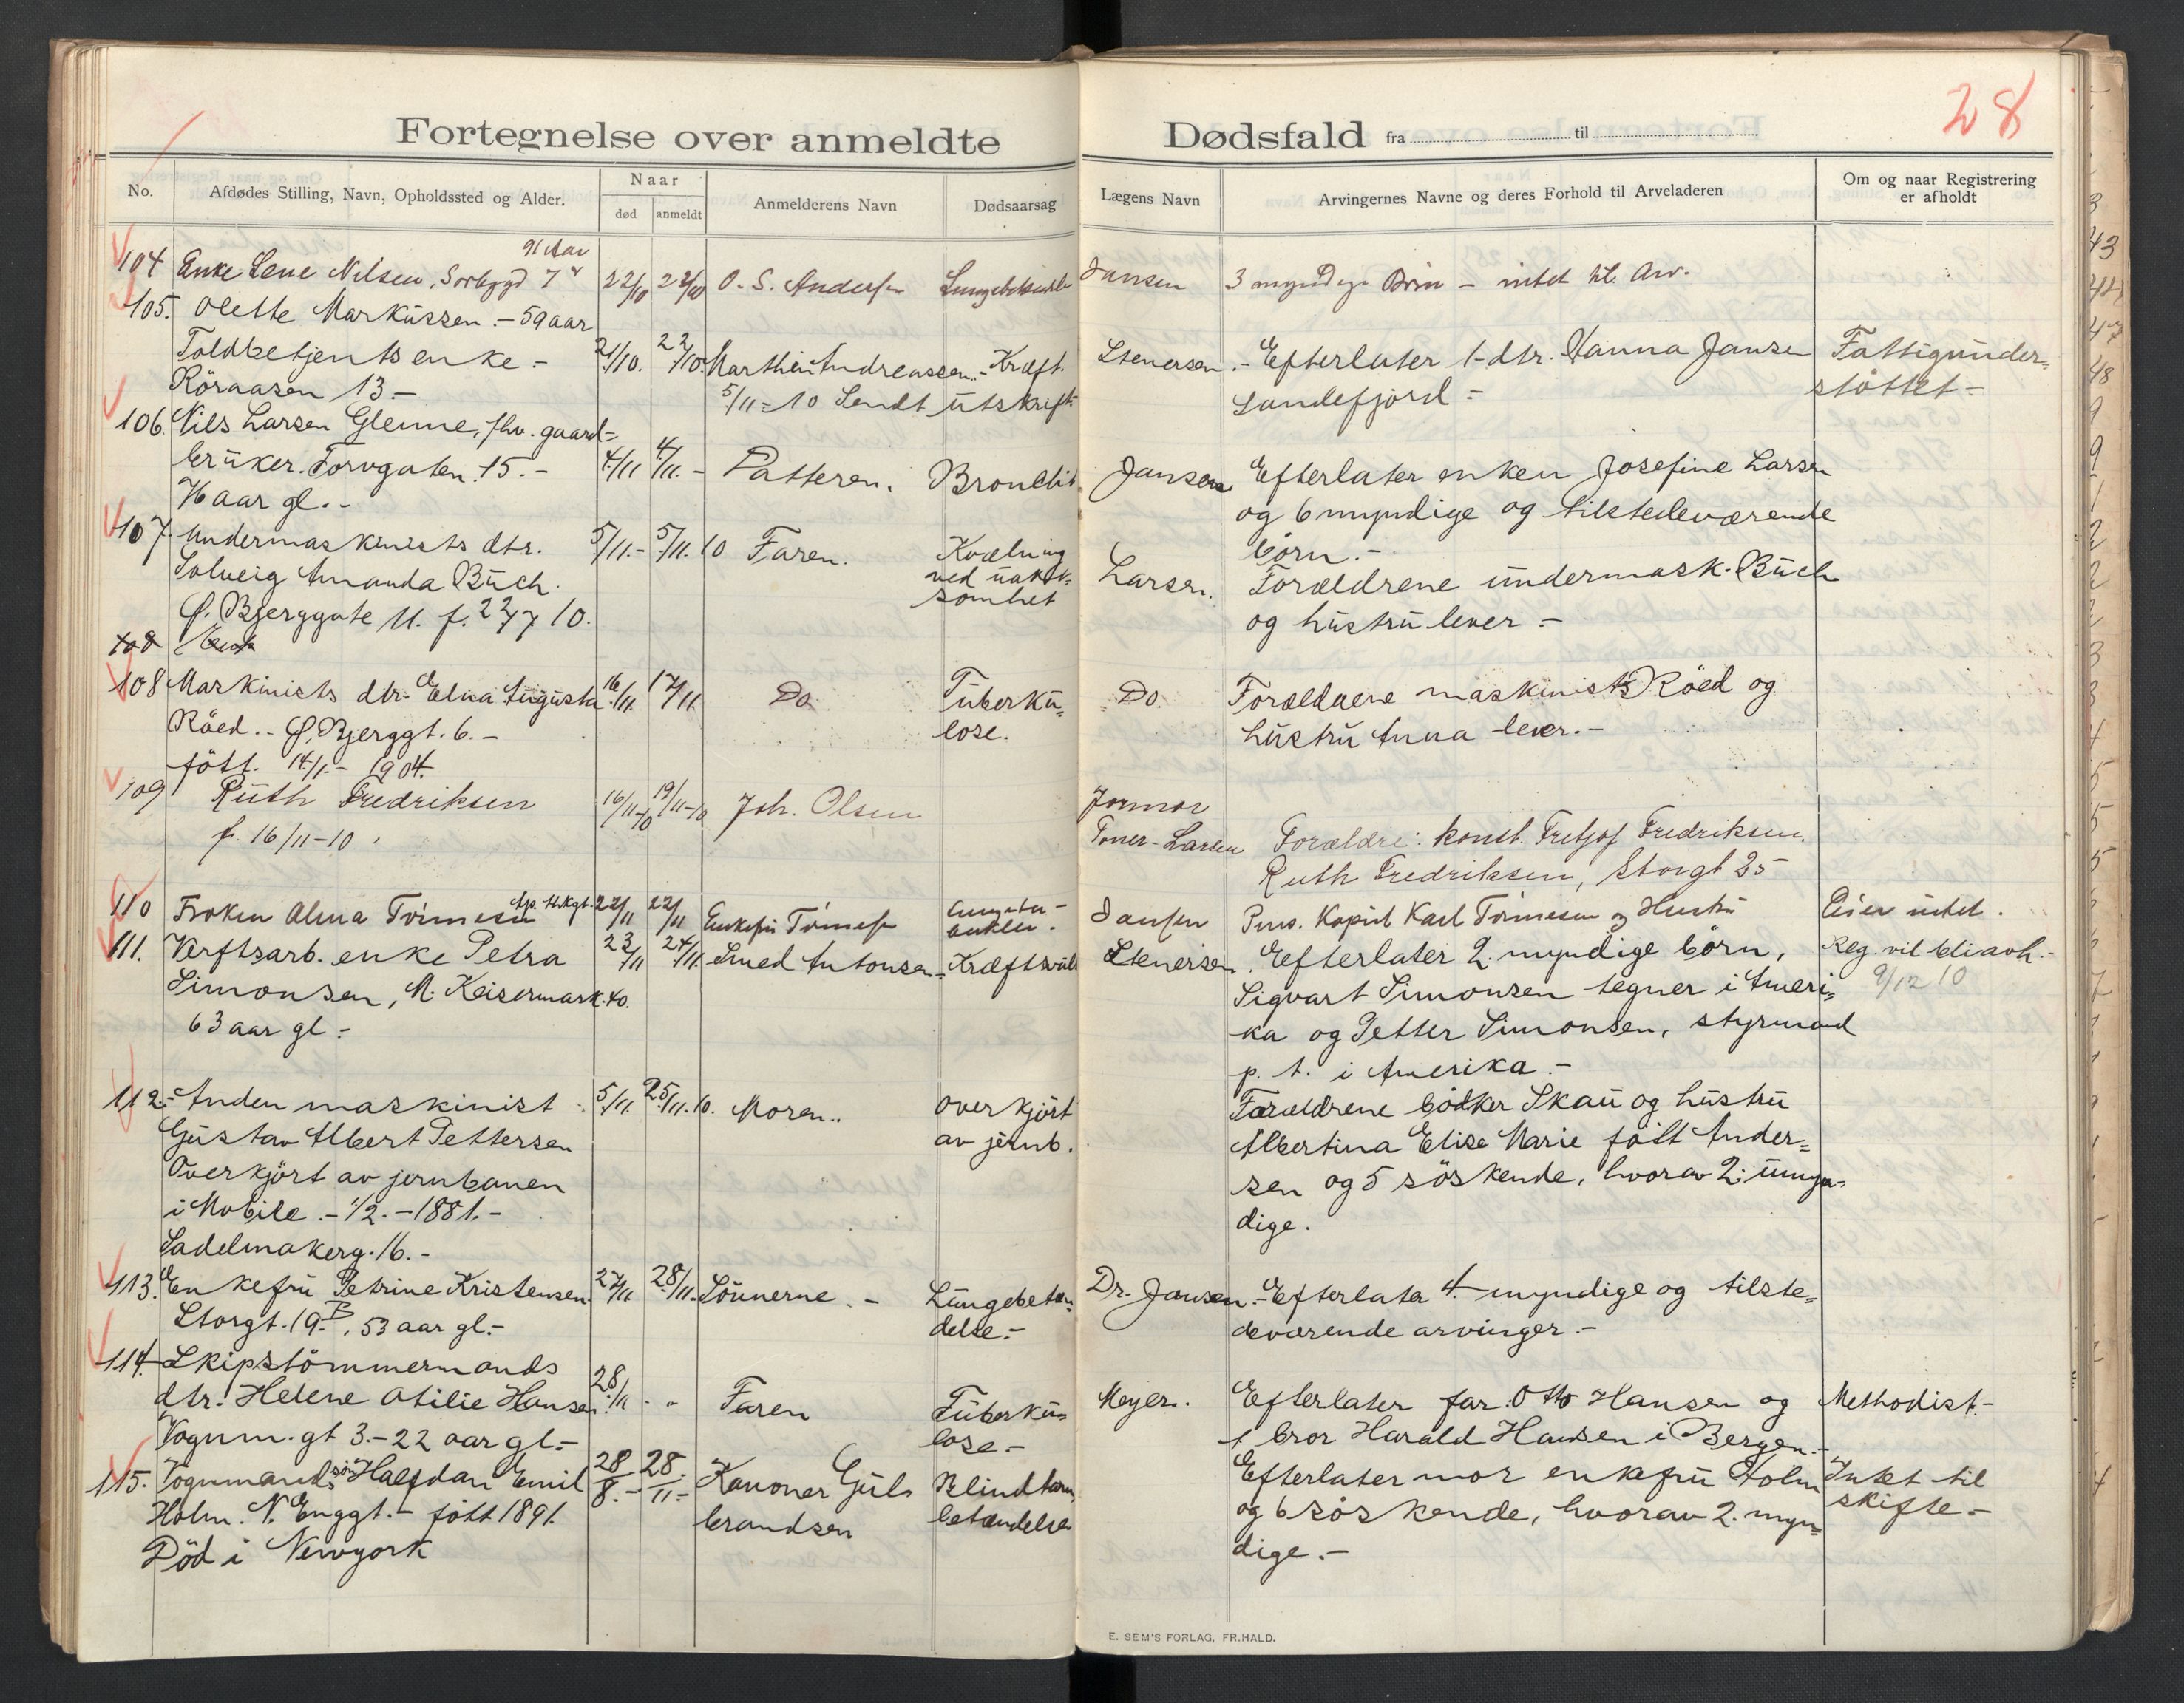 28
Fortegnelse over anmeldte Dødsfald fra til
No.
Afdødes Stilling, Navn, Opholdssted og Alder.
Naar
død
anmeldt
Anmelderens Navn
Dødsaarsag
Lægens Navn
Arvingernes Navne og deres Forhold til Arveladeren
Om og naar Registrering
er afholdt
91 Aar
104 Enke Lene Nilsen, 22/10 22/10 O. S. Andersen Jansen 3 myndige Børn – intet til Arv.
105. Olette Markussen. – 59 aar
Toldbetjents enke – 21/10. 22/10. Marthin Andreassen. – Kræft. Stenersen. – Efterlater 1 dtr. Hanna Jansen Fattigunder=
Röraasen 13. – 5/11=10 Sendt utskrift Sandefjord – støttet –
106. Nils Larsen Glenne, fhv. gaard=
bruker. Torvgaten 15. – 4/11 4/11. – Datteren. Bronchit Jansen Efterlater enken Josefine Larsen
76 aar gl. – og 6 myndige og tilstedeværende
børn. –
107. Undermaskinists dtr. 5/11. – 5/11. 10 Faren. Kvælning Larsen. Forældrene undermask. Buch
Solveig Amanda Buch. ved uakt= og hustru lever –
Ø. Bjerggate 11. f. 22/7 10. somhet
108
108 Maskinists dtr. Elna Augusta 16/11. 17/11 Do Tuberku= Do. Forældrene maskinist Röed og
Röed. – Ø. Bjerggt. 6. – lose. hustru Anna lever. –
født. 14/1. – 1904.
109 Ruth Fredriksen 16/11-10 19/11-10 Joh. Olsen Jormor
f. 16/11-10 Toner-Larsen Forældre: konst. Fretjof Fredriksen.
Ruth Fredriksen, Storgt 25
110 Frøken Alma 22/11 22/11 Enkefru Jansen Pens. Kapt Karl og Hustru Eier intet.
111. Verftsarb. enke Petra 23/11 24/11. Smed Antonsen – Kræftsvul Stenersen. Efterlater 2 myndige børn, Reg. vil bli avh. –
Simonsen, M. Keisermark. 40. Sigvart Simonsen tegner i Ameri= 9/12 10
63 aar gl – ka og Petter Simonsen, styrmand
p. t. i Amerika –
112. – Anden maskinist 5/11. 25/11. 10. Moren.. Overkjört Forældrene bødker Skau og hustru
Gustav Albert Pettersen av jernb. Albertina Elise Marie født Ander=
Overkjört av jernbanen sen og 5 söskende, hvorav 2 umyn=
i Mobile. – 1/2. – 1881. – dige.
Sadelmakerg. 16. –
113. Enkefru Petrine Kristensen. 27/11 28/11. Sönnerne. – Lungebetæn= Dr. Jansen. – Efterlater 4 myndige og tilste=
Storgt. 19. B, 53 aar gl. – delse. – deværende arvinger. –
114. Skipstömmermands
dtr. Helene Otilie Hansen. 28/11 - " Faren Tuberku= Meyer. Efterlater far: Otto Hansen og Methodist. –
Vognm. gt 3. – 22 aar gl. – lose. – 1 bror Harald Hansen i Bergen. –
115. Vognmands søn Halfdan Emil 28/8. – 28/11 – Kanoner Gul= Blindtarm Efterlater mor enkefru Holm Intet til
Holm. N. Enggt. – født 1891. brandsen betændelse og 6 söskende, hvorav 2 myn= skifte. –
Död i Newyork dige. –
E. SEM'S FORLAG, FR.HALD.